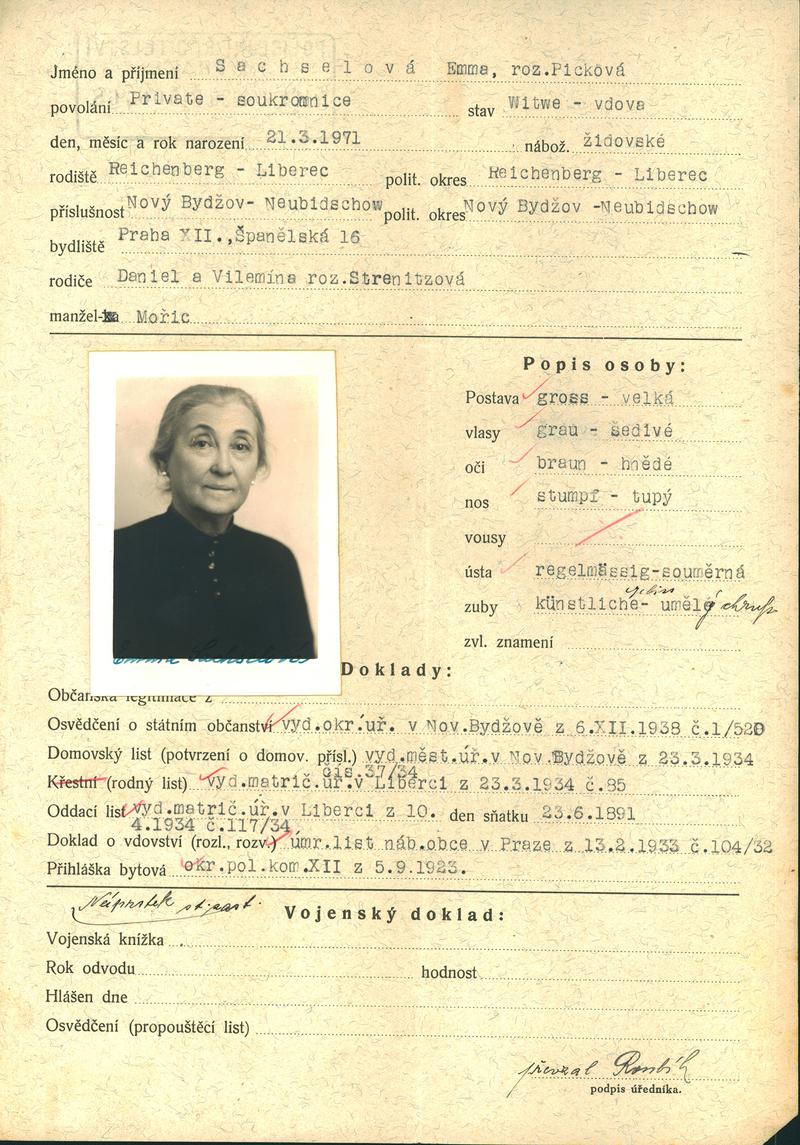 Jméno a příjmení Sachselová Emma, roz.Picková
povolání Private - soukromnice stav Witwe - vdova
den, měsíc a rok narození 21.3.1971 nábož. židovské
rodiště Reichenberg - Liberec polit. okres Reichenberg - Liberec
příslušnost Nový Bydžov- Neubidschow polit. okres Nový Bydžov -Neubidschow
bydliště Praha XII.,Španělská 16
rodiče Daniel a Vilemína roz.Strenitzová
manžel-ka Mořic
Popis osoby:
Postava gross - velká
vlasy grau - šedivé
oči braun - hnědé
nos stumpf - tupý
vousy
ústa regelmässig-souměrná
zuby künstliche- umělý chrup
zvl. znamení
Emma Sachselová
Doklady:
Občanská legitimace z
Osvědčení o státním občanství vyd.okr.úř. v Nov.Bydžově z 6.XII.1938 č.1/520
Domovský list (potvrzení o domov. přísl.) vyd.měst.úř.v Nov.Bydžově z 23.3.1934
čis.37/34
Křestní (rodný list) vyd.matrič.úř.v Liberci z 23.3.1934 č.85
Oddací list vyd.matrič.úř.v Liberci z 10. den sňatku 23.6.1891
4.1934 č.117/34
Doklad o vdovství (rozl., rozv.) úmr.list náb.obce v Praze z 13.2.1933 č.104/32
Přihláška bytová okr.pol.kom.XII z 5.9.1923.
Vojenský doklad:
Vojenská knížka
Rok odvodu hodnost
Hlášen dne
Osvědčení (propouštěcí list)
převzal
podpis úředníka.